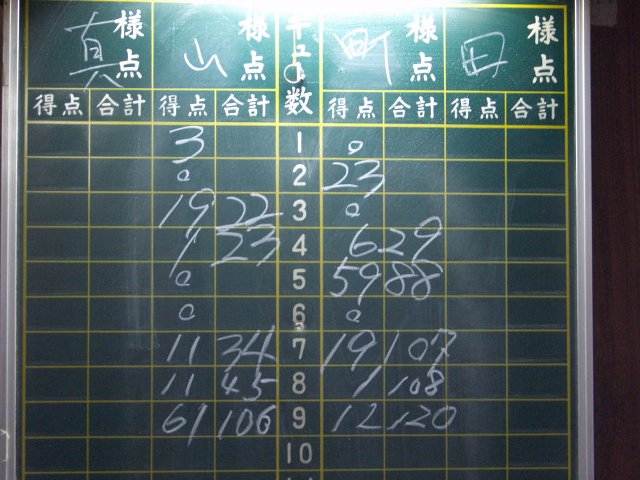 真 様点 山 様点 キュー数 町 様点 田 様点
得点 合計 得点 合計 得点 合計 得点 合計
3 1 0
0 2 23
19 22 3 0
1 23 4 6 29
0 5 59 88
0 6 0
11 34 7 19 107
11 45 8 1 108
61 106 9 12 120
10